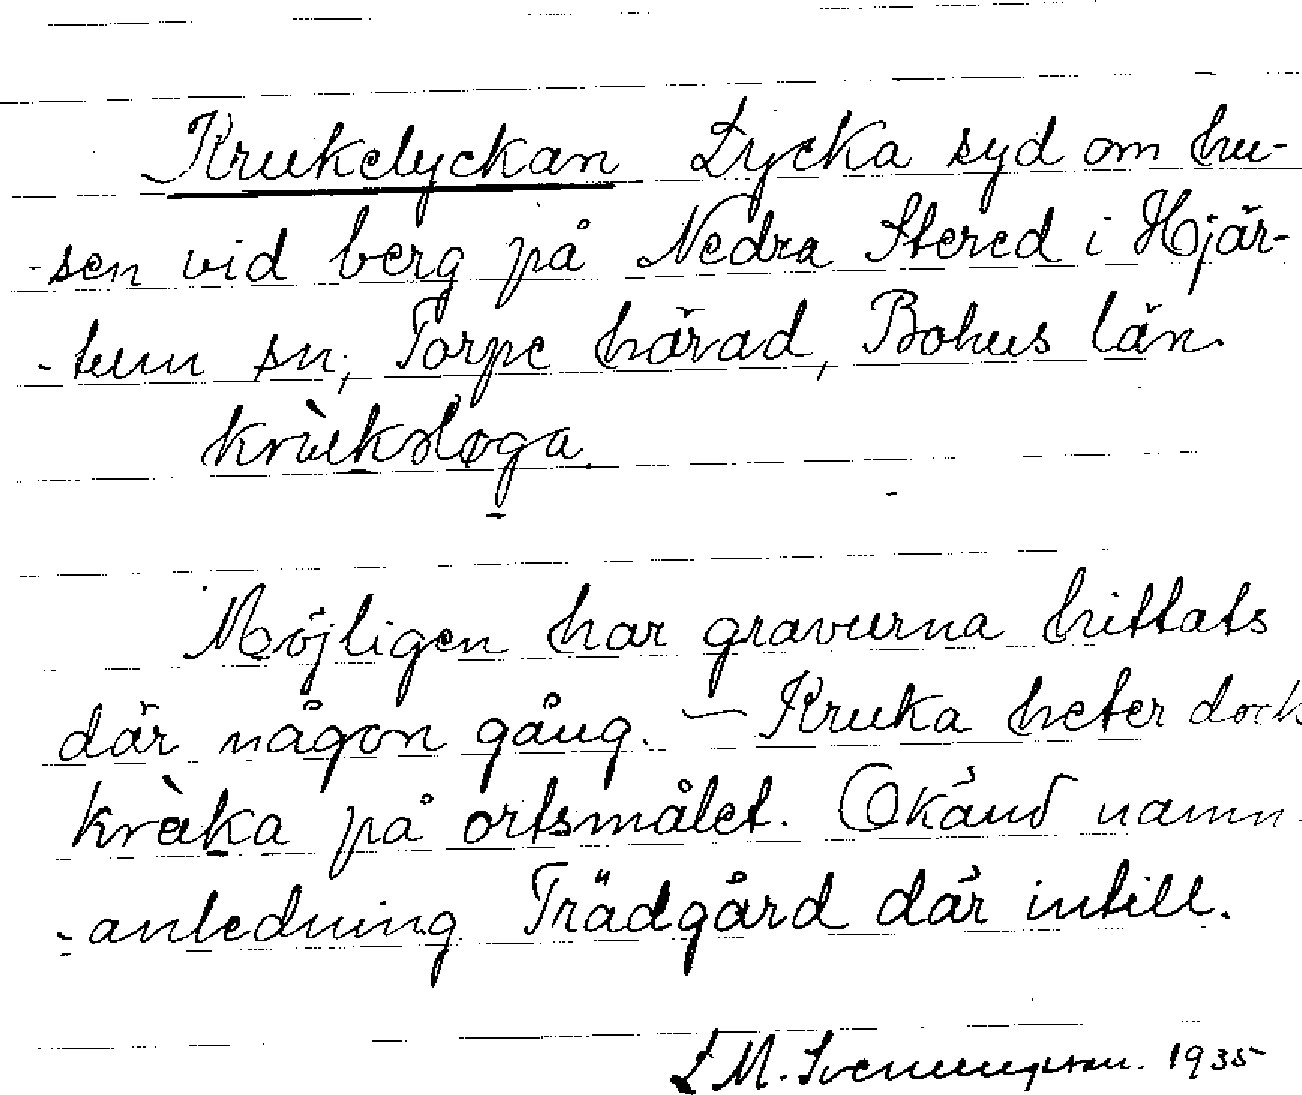 Krukelyckan Lycka syd om hu-
-sen vid berg på Nedra Stered i Hjär-
-tum sn, Torpe härad, Bohus län.
Möjligen har gravurna hittats
där någon gång. — Kruka heter dock
på ortsmålet. Okänd namn-
-anledning Trädgård där intill.
L M. Svenungsson. 1935